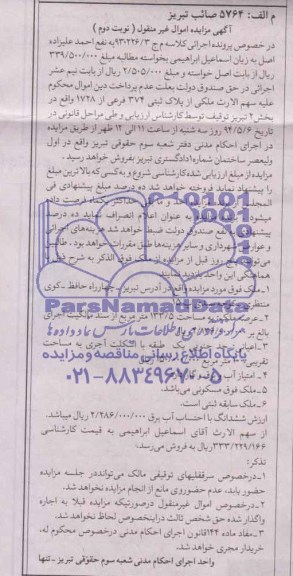 م الف: ۵۷۶۴ صائب تبریز
آگهی مزایده اموال غیر منقول ( نوبت دوم )
در خصوص پرونده اجرائی کلاسه م ج ۹۳-۲۲۶/۳ به نفع احمد علیزاده
اصل به زیان اسماعیل ابراهیمی بخواسته مطالبه مبلغ ۳۳۹/۵۰۰/۰۰۰
ریال از بابت اصل خواسته و مبلغ ۲/۵۰۵/۰۰۰ ریال از بابت نیم عشر
اجرائی در حق صندوق دولت بعلت عدم پرداخت دین از اموال محکوم
علیه سهم الارث ملکی از پلاک ثبتی ۳۷۴ فرعی از ۱۷۲۸ واقع در
بخش ۲ تبریز توقیف توسط کارشناس ارزیابی و طی مراحل قانونی در
تاریخ ۹۴/۵/۶ روز سه شنبه از ساعت ۱۱ الی ۱۲ ظهر از طریق مزایده
در اجرای احکام مدنی دفتر شعبه سوم حقوقی تبریز واقع در اول
ولیعصر ساختمان شماره ۱ دادگستری تبریز بفروش خواهد رسید .
مزایده از مبلغ ارزیابی شده کارشناسی شروع و به کسی که بالاترین مبلغ
را پیشنهاد نماید فروخته خواهد شد ده درصد مبلغ پیشنهادی فی
المجلس
میشود به عنوان اعلام انصراف نماید ده درصد
پیشنهادی به نفع صندوق دولت ضبط خواهد شد هزینه های اجرائی
و عوارض شهرداری و سایر هزینه ها طبق مقررات خواهد بود . طالبین
می توانند پنج روز قبل از مزایده از ملک فوق الذکر به شرح ذیل با
هماهنگی این واحد بازدید نمایند
۱-ملک فوق مورد مزایده واقع در آدرس تبریز - چهارراه حافظ - کوی
منتظری
۲-عرصه ملک به مساحت ۱۳۳/۵ متر مربع از سند مالکیت اجرای
۳-اعیانی طبقه با اسکلت آجری به مساحت
تقریبی
۴-امتیاز آب
۵-ملک فوق مسکونی می باشد.
۶-ملک سابقه ثبتی است.
ارزش ششدانگ با احتساب آب برق ۲/۲۸۶/۰۰۰/۰۰۰ ریال میباشد.
از سهم الارث آقای اسماعیل ابراهیمی به قیمت کارشناسی
۳۳۳/۲۲۹/۱۶۶ ریال به فروش می رسد.
تذکر:
۱-درخصوص سرقفلیهای توقیفی مالک می تواند در جلسه مزایده
حضور یابد، عدم حضور وی مانع از انجام مزایده نخواهد شد.
۲-درخصوص اموال غیرمنقول درصورتیکه مزایده قبلا به اجاره
واگذار شده حق شخص ثالث دراینخصوص لحاظ نخواهد شد.
۳-مفاد ماده ۱۴۴ قانون اجرای احکام مدنی درخصوص محکوم له،
خریدار مجری خواهد شد.
واحد اجرای احکام مدنی شعبه سوم حقوقی تبریز - تنها
ParsNamadData
پایگاه اطلاع رسانی مناقصه و مزایده
۰۲۱-۸۸۳۴۹۶۷۰-۵